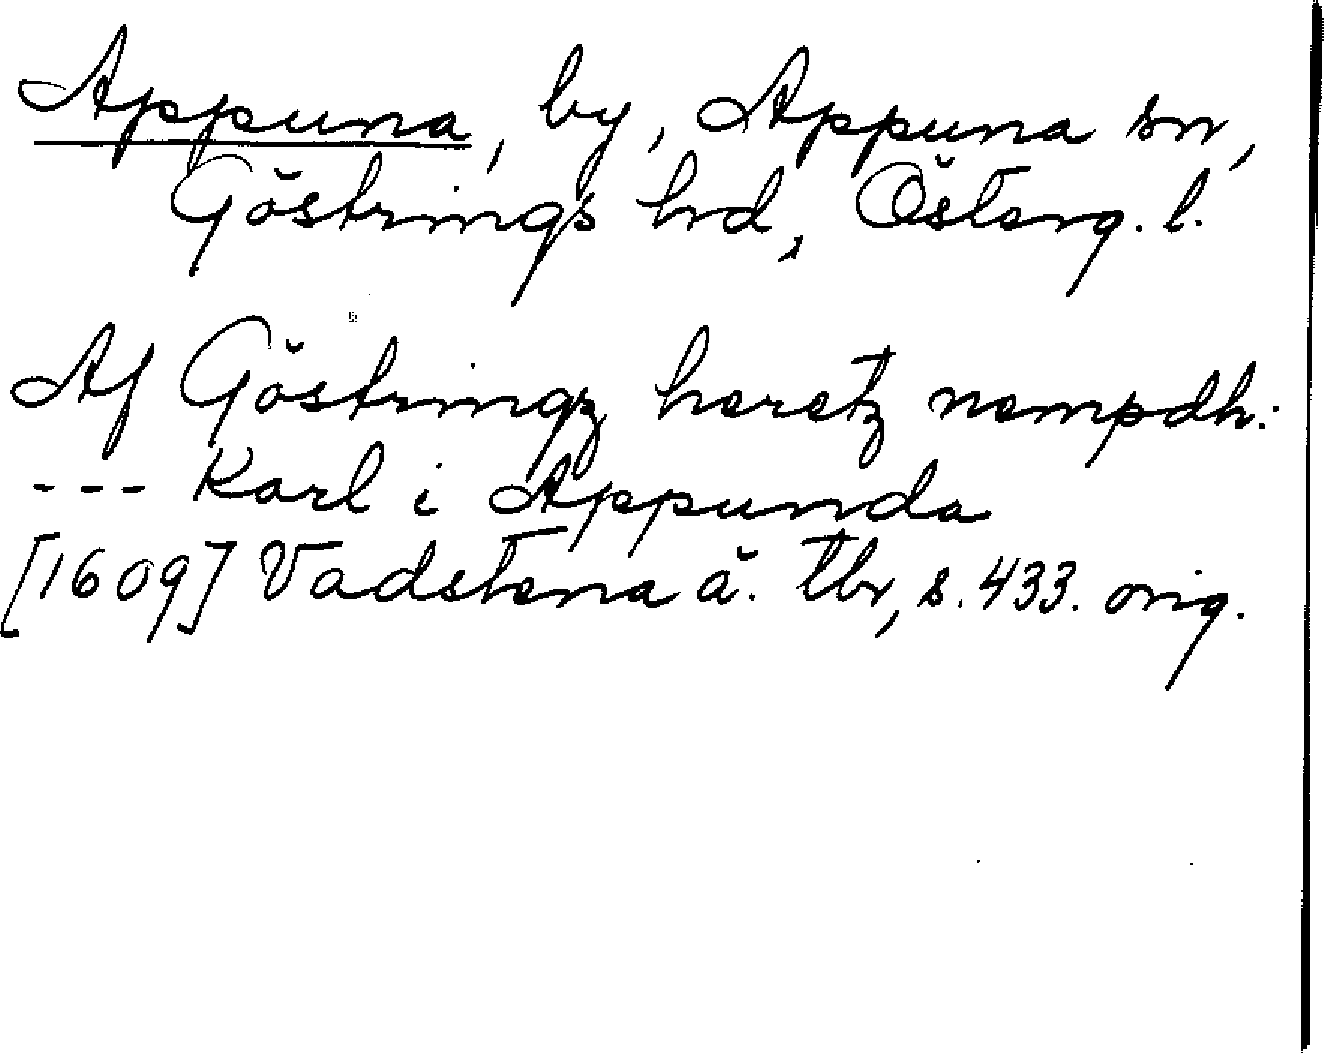 Appuna, by, Appuna sn,
Göstrings hrd, Österg. l.
Af Göstringz heretz nempdh:
--- Karl i Appunda
[1609] Vadstena ä. tbr, s. 433. orig.